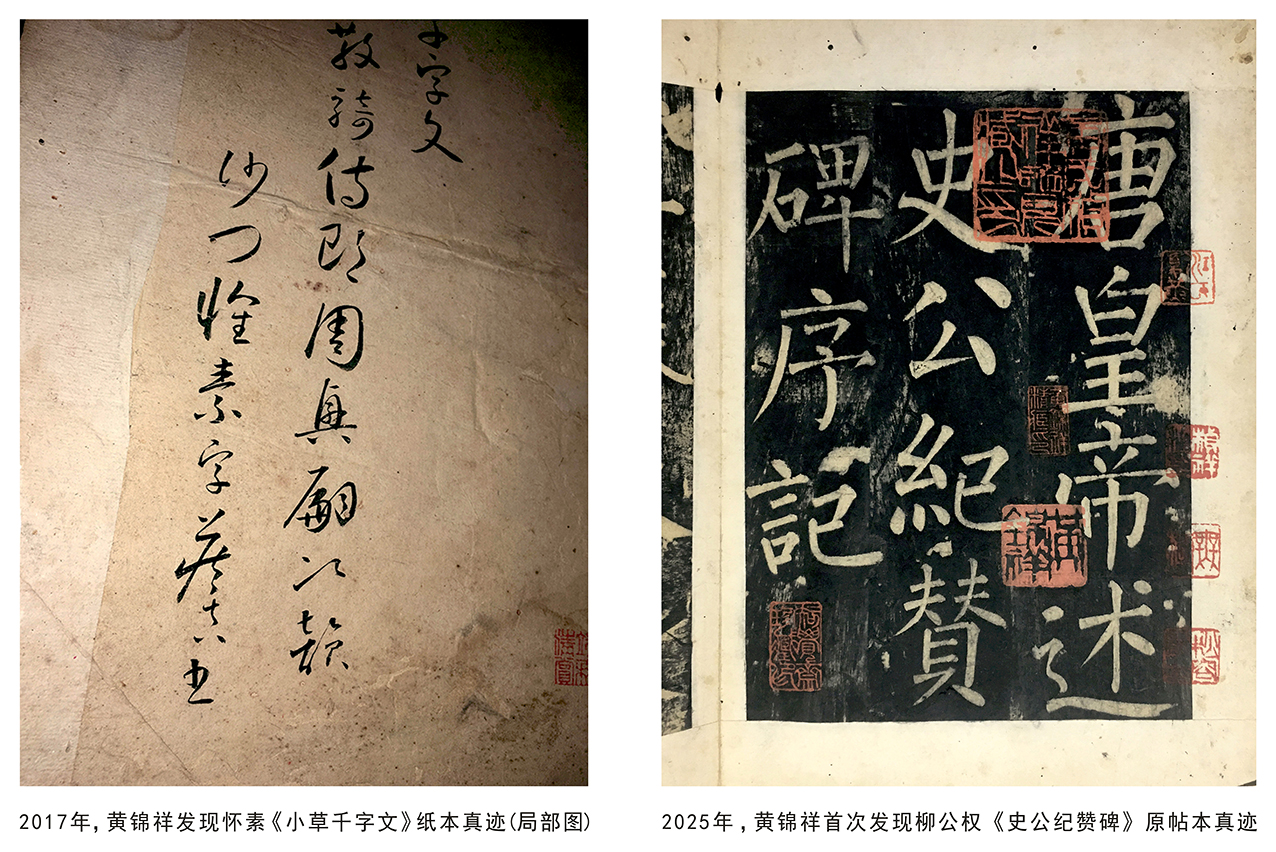 千字文
散騎侍郎周興嗣次韻
沙門懷素字藏真書
2017年,黄锦祥发现怀素《小草千字文》纸本真迹(局部图)
唐皇帝述
史公紀賛
碑序記
2025年,黄锦祥首次发现柳公权《史公纪赞碑》原帖本真迹